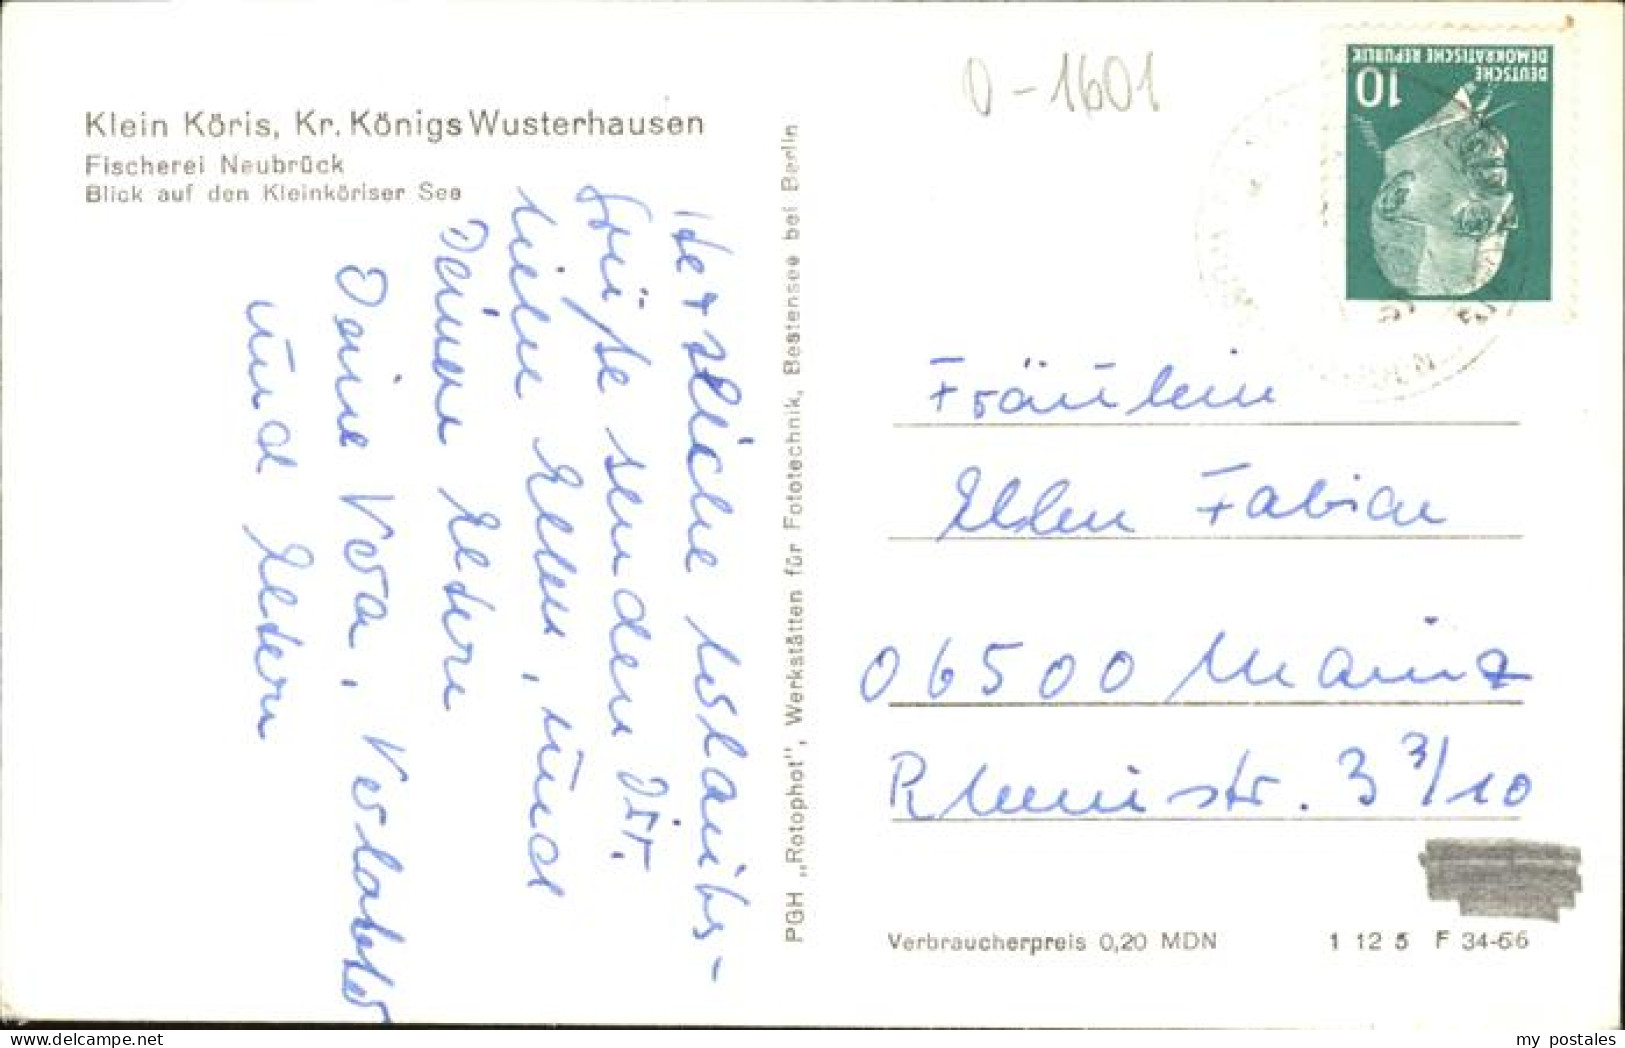 Klein Köris, Kr. Königs Wusterhausen
Fischerei Neubrück
Blick auf den Kleinköriser See
Herzliche Urlaubs-
grüße senden Dir
liebe Ellen, und
Deinen Eltern
Deine Vera,
und Eltern
PGH „Rotophot", Werkstätten für Fototechnik, Bestensee bei Berlin
0-1601
DEUTSCHE
DEMOKRATISCHE REPUBLIK
10
Fräulein
Ellen Fabian
06500 Mainz
Rheinstr. 3 3/10
Verbraucherpreis 0,20 MDN
1 12 5 F 34-66
my postales